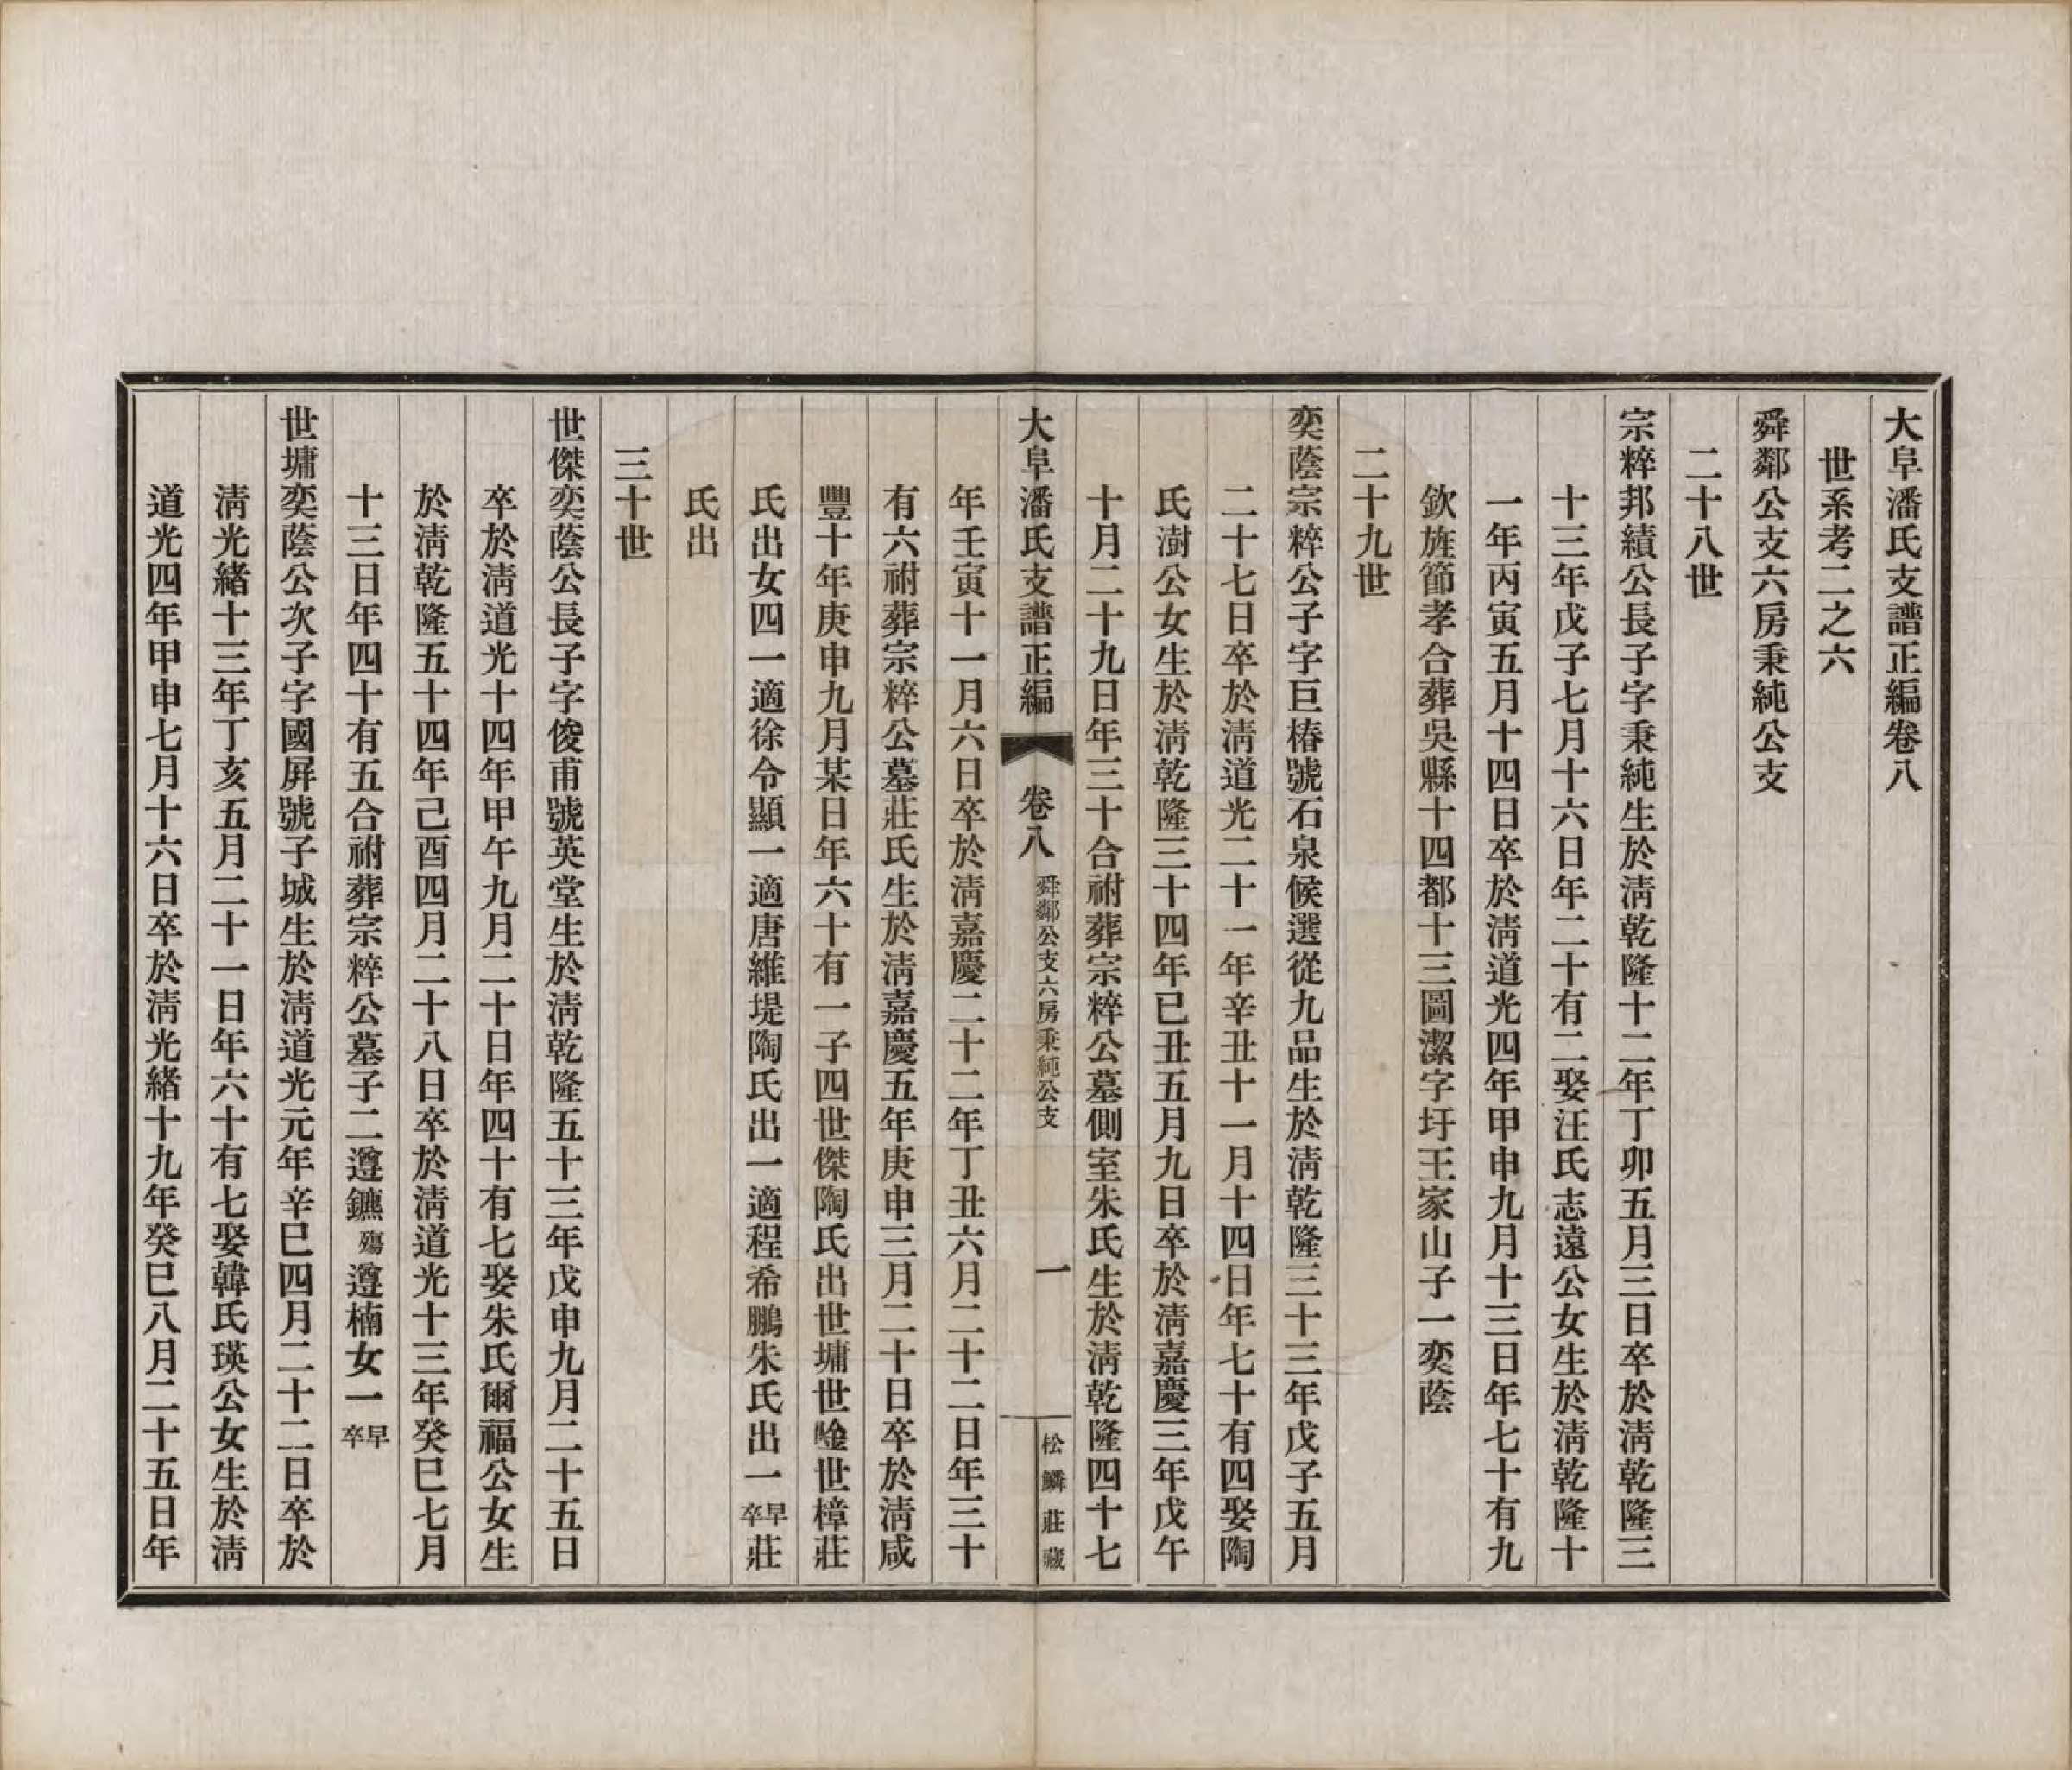 大阜潘氏支譜正編卷八
世系考二之六
舜鄰公支六房秉純公支
二十八世
宗粹邦績公長子字秉純生於淸乾隆十二年丁卯五月三日卒於淸乾隆三
十三年戊子七月十六日年二十有二娶汪氏志遠公女生於淸乾隆十
一年丙寅五月十四日卒於淸道光四年甲申九月十三日年七十有九
欽旌節孝合葬吳縣十四都十三圖潔字圩王家山子一奕蔭
二十九世
奕蔭宗粹公子字巨椿號石泉候選從九品生於淸乾隆三十三年戊子五月
二十七日卒於淸道光二十一年辛丑十一月十四日年七十有四娶陶
氏澍公女生於淸乾隆三十四年已丑五月九日卒於淸嘉慶三年戊午
十月二十九日年三十合祔葬宗粹公墓側室朱氏生於淸乾隆四十七
大阜潘氏支譜正編 卷八 舜鄰公支六房秉純公支 一 松鱗莊藏
年壬寅十一月六日卒於淸嘉慶二十二年丁丑六月二十二日年三十
有六祔葬宗粹公墓莊氏生於淸嘉慶五年庚申三月二十日卒於淸咸
豐十年庚申九月某日年六十有一子四世傑陶氏出世墉世崯世樟莊
氏出女四一適徐令顯一適唐維堤陶氏出一適程希鵬朱氏出一早卒莊
氏出
三十世
世傑奕蔭公長子字俊甫號英堂生於淸乾隆五十三年戊申九月二十五日
卒於淸道光十四年甲午九月二十日年四十有七娶朱氏爾福公女生
於淸乾隆五十四年己酉四月二十八日卒於淸道光十三年癸巳七月
十三日年四十有五合祔葬宗粹公墓子二遵鑣殤遵楠女一早卒
世墉奕蔭公次子字國屛號子城生於淸道光元年辛巳四月二十二日卒於
淸光緒十三年丁亥五月二十一日年六十有七娶韓氏瑛公女生於淸
道光四年甲申七月十六日卒於淸光緒十九年癸巳八月二十五日年